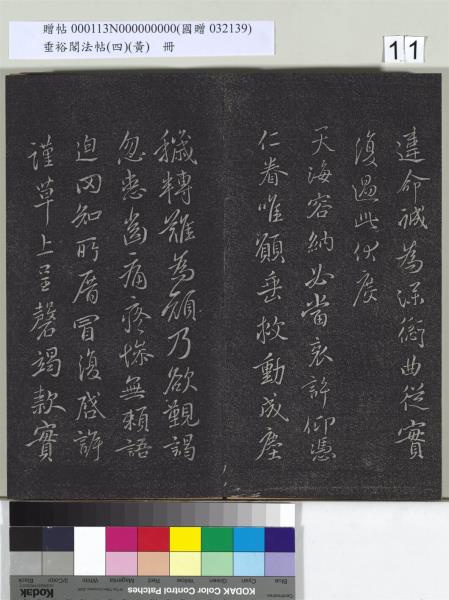 贈帖 000113N000000000(國贈 032139)
垂裕閣法帖(四)(黃)　冊
11
違命誠為深衍曲從實
復過此伏度
天海容納必當哀許仰憑
仁眷唯願垂救動成塵
穢轉難為顏乃欲覲謁
忽患齒痛疼慘無賴語
迫罔知所厝冒復啓訴
謹草上呈罄竭款實
Blue
Cyan
Green
Yellow
Red
Magenta
White
3/Color
Black
Kodak Color Control Patches
Kodak